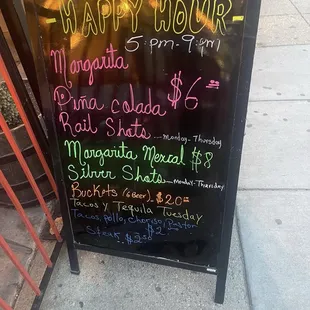 HAPPY HOUR
5pm-9pm
Margarita
Piña colada $6.00
Rail Shots
...Monday-Thursday
Margarita Mezcal $8
Silver Shots...Monday-Thursday
Buckets (6 Beer) $20.00
Tacos y Tequila Tuesday
Tacos, pollo, choriso, Pastor
$2
Steak